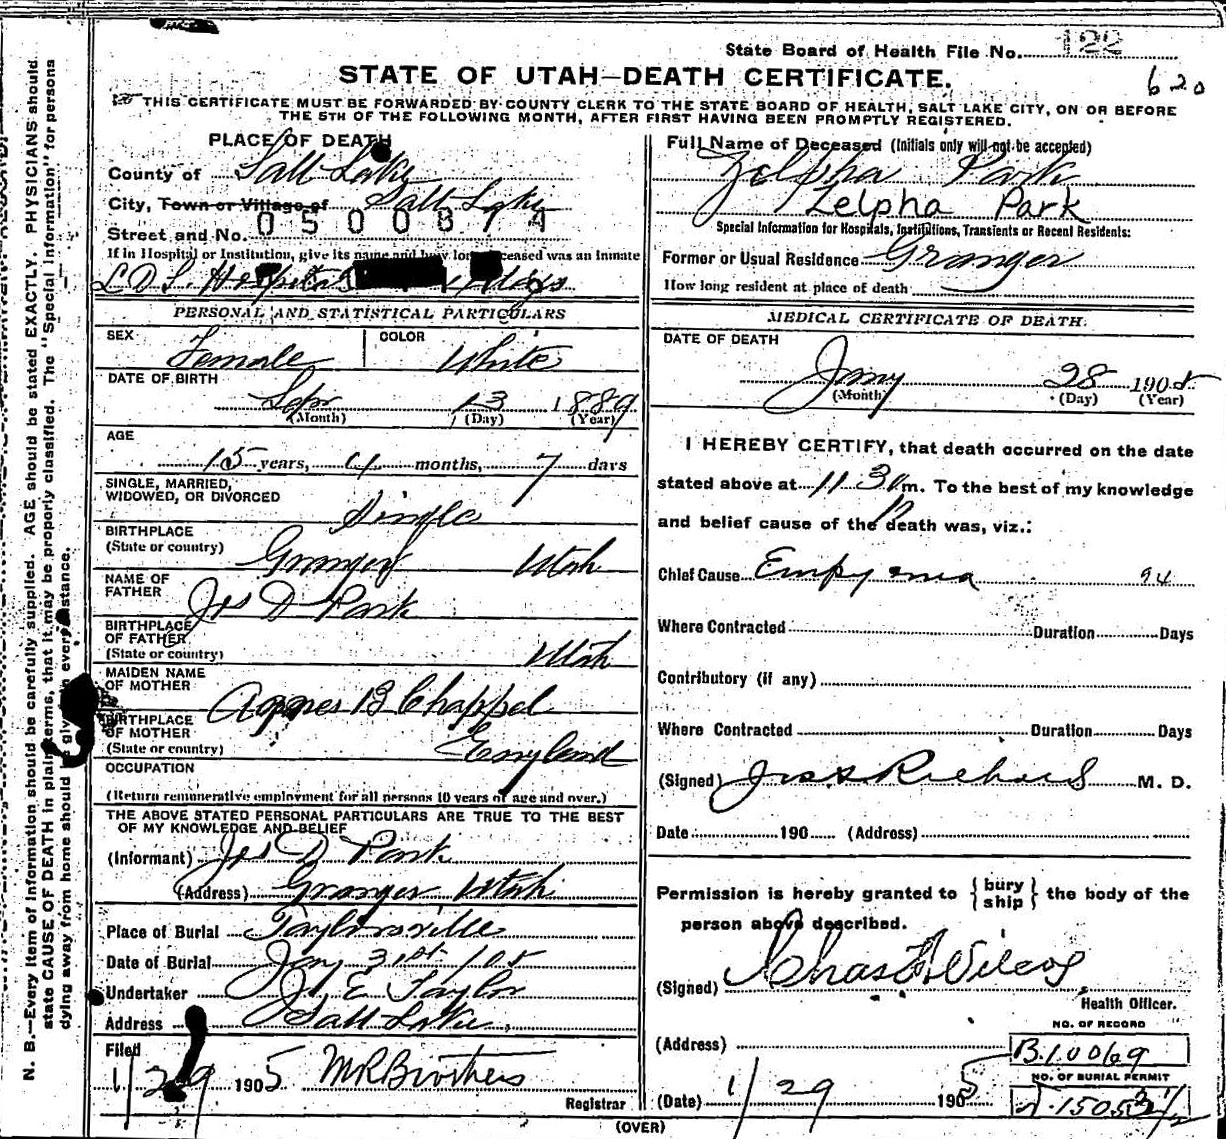 State Board of Health File No. 122
620
STATE OF UTAH—DEATH CERTIFICATE.
THIS CERTIFICATE MUST BE FORWARDED BY COUNTY CLERK TO THE STATE BOARD OF HEALTH, SALT LAKE CITY, ON OR BEFORE
THE 5TH OF THE FOLLOWING MONTH, AFTER FIRST HAVING BEEN PROMPTLY REGISTERED.
N. B.—Every item of information should be carefully supplied. AGE should be stated EXACTLY. PHYSICIANS should
state CAUSE OF DEATH in plain terms, that it may be properly classified. The "Special Information" for persons
dying away from home should be given in every instance.
PLACE OF DEATH
County of Salt Lake
City, Town or Village of Salt Lake
0500874
Street and No.
If in Hospital or Institution, give its name and how long deceased was an inmate
L D S. Hospital days
PERSONAL AND STATISTICAL PARTICULARS
SEX Female COLOR White
DATE OF BIRTH
Sep 13 1889
(Month) (Day) (Year)
AGE
15 years, 4 months, 7 days
SINGLE, MARRIED,
WIDOWED, OR DIVORCED Single
BIRTHPLACE
(State or country) Granger Utah
NAME OF
FATHER Jos D Park
BIRTHPLACE
OF FATHER
(State or country) Utah
MAIDEN NAME
OF MOTHER Agnes B Chappel
BIRTHPLACE
OF MOTHER
(State or country) England
OCCUPATION
(Return remunerative employment for all persons 10 years of age and over.)
THE ABOVE STATED PERSONAL PARTICULARS ARE TRUE TO THE BEST
OF MY KNOWLEDGE AND BELIEF
(Informant) Jos D Park
(Address) Granger Utah
Place of Burial Taylorsville
Date of Burial Jan 31st 105
Undertaker Jos E Taylor
Address Salt Lake
Filed
1/29 1905 M R Brothers
Registrar
Full Name of Deceased (Initials only will not be accepted)
Zelpha Park
Zelpha Park
Special Information for Hospitals, Institutions, Transients or Recent Residents:
Former or Usual Residence Granger
How long resident at place of death
MEDICAL CERTIFICATE OF DEATH.
DATE OF DEATH
Jany 28 1905
(Month) (Day) (Year)
I HEREBY CERTIFY, that death occurred on the date
stated above at 11 30 P m. To the best of my knowledge
and belief cause of the death was, viz.:
Chief Cause Empyema 94
Where Contracted Duration Days
Contributory (if any)
Where Contracted Duration Days
(Signed) Richards M. D.
Date 190 (Address)
Permission is hereby granted to {bury ship} the body of the
person above described.
(Signed) Chas F Wilcox
Health Officer.
(Address)
NO. OF RECORD
B.10069
NO. OF BURIAL PERMIT
(Date) 1/29 1905
(OVER)